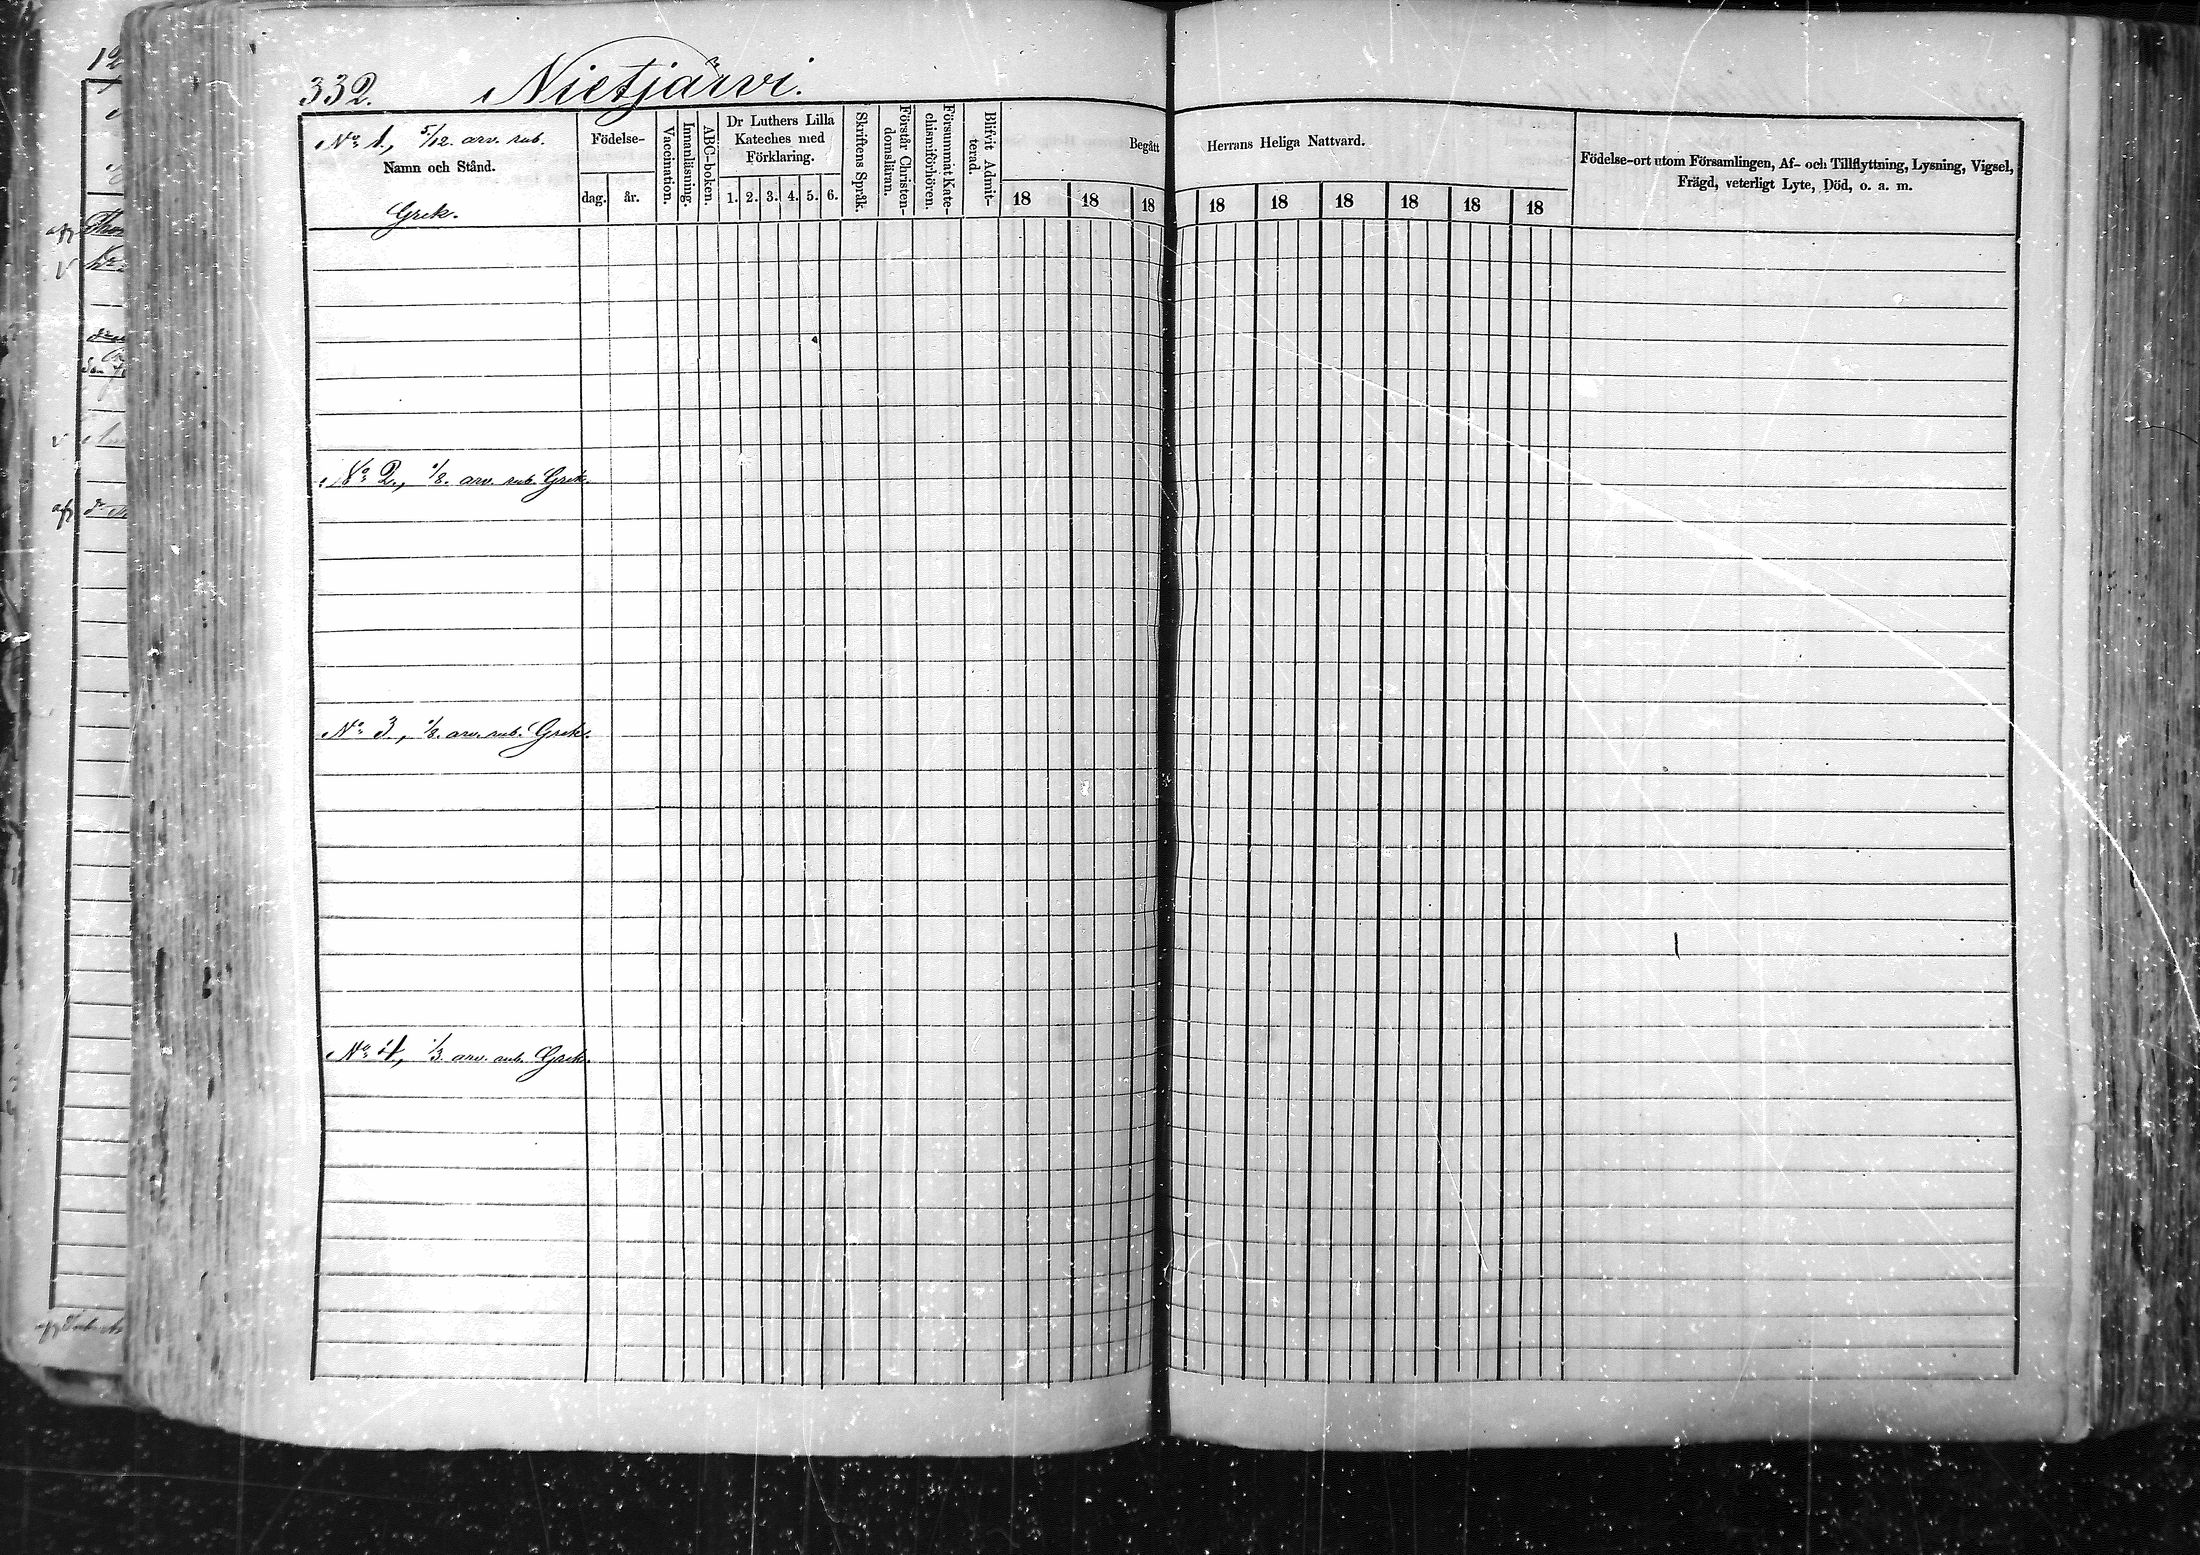 332.
Nietjärvi.
No 1, 5/12. arv. rub.
Namn och Stånd.
Grek.
Födelse-
dag. år.
Vaccination.
Innanläsning.
ABC-boken.
Dr Luthers Lilla
Kateches med
Förklaring.
1. 2. 3. 4. 5. 6.
Skriftens Språk.
Förstår Christen-
domsläran.
Försummat Kate-
chismiförhören.
Blifvit Admit-
terad.
Begått Herrans Heliga Nattvard.
18 18 18 18 18 18 18 18 18
Födelse-ort utom Församlingen, Af- och Tillflyttning, Lysning, Vigsel,
Frägd, veterligt Lyte, Död, o. a. m.
No 2., 1/8. arv. rub. Grek.
No 3., 1/8. arv. rub. Grek.
No 4, 1/3 arv. rub. Grek.